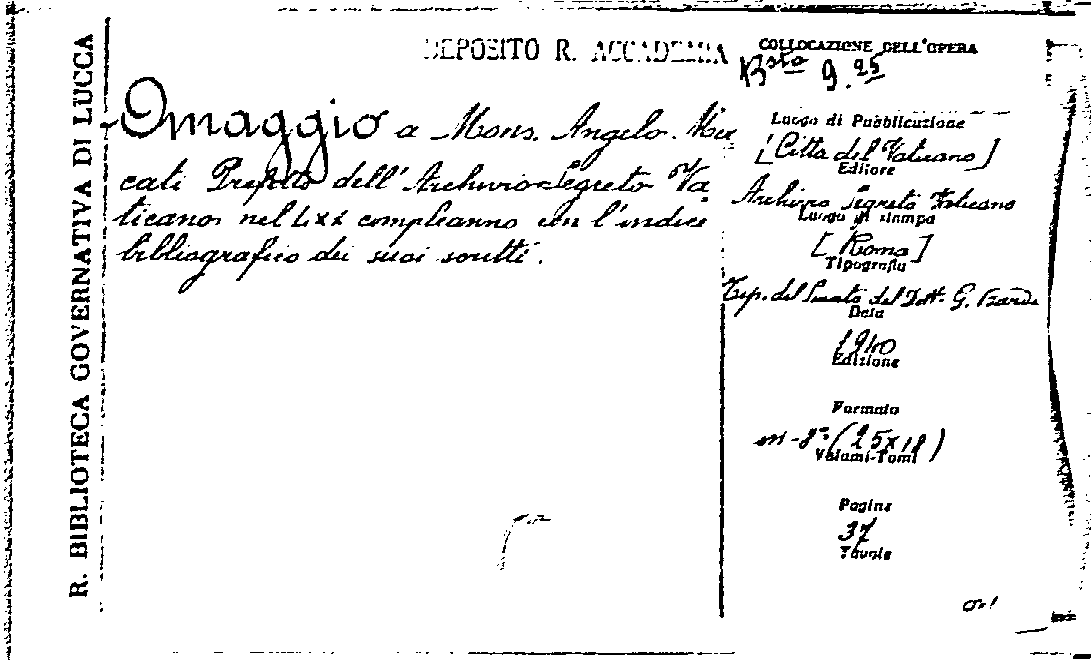 R. BIBLIOTECA GOVERNATIVA DI LUCCA
DEPOSITO R. ACCADEMIA
Omaggio a Mons. Angelo Mer
cati Prefetto dell'Archivio Segreto Va
ticano nel LXX compleanno con l'indice
bibliografico dei suoi scritti.
COLLOCAZIONE DELL'OPERA
Bsta 9.25
Luogo di Pubblicazione
[Città del Vaticano]
Editore
Archivio Segreto Vaticano
Luogo di stampa
[Roma]
Tipografia
Tip. del Senato del Dott. G. Bardi
Data
1940
Edizione
Formato
in-8° (25x18)
Volumi-Tomi
Pagine
37
Tavole